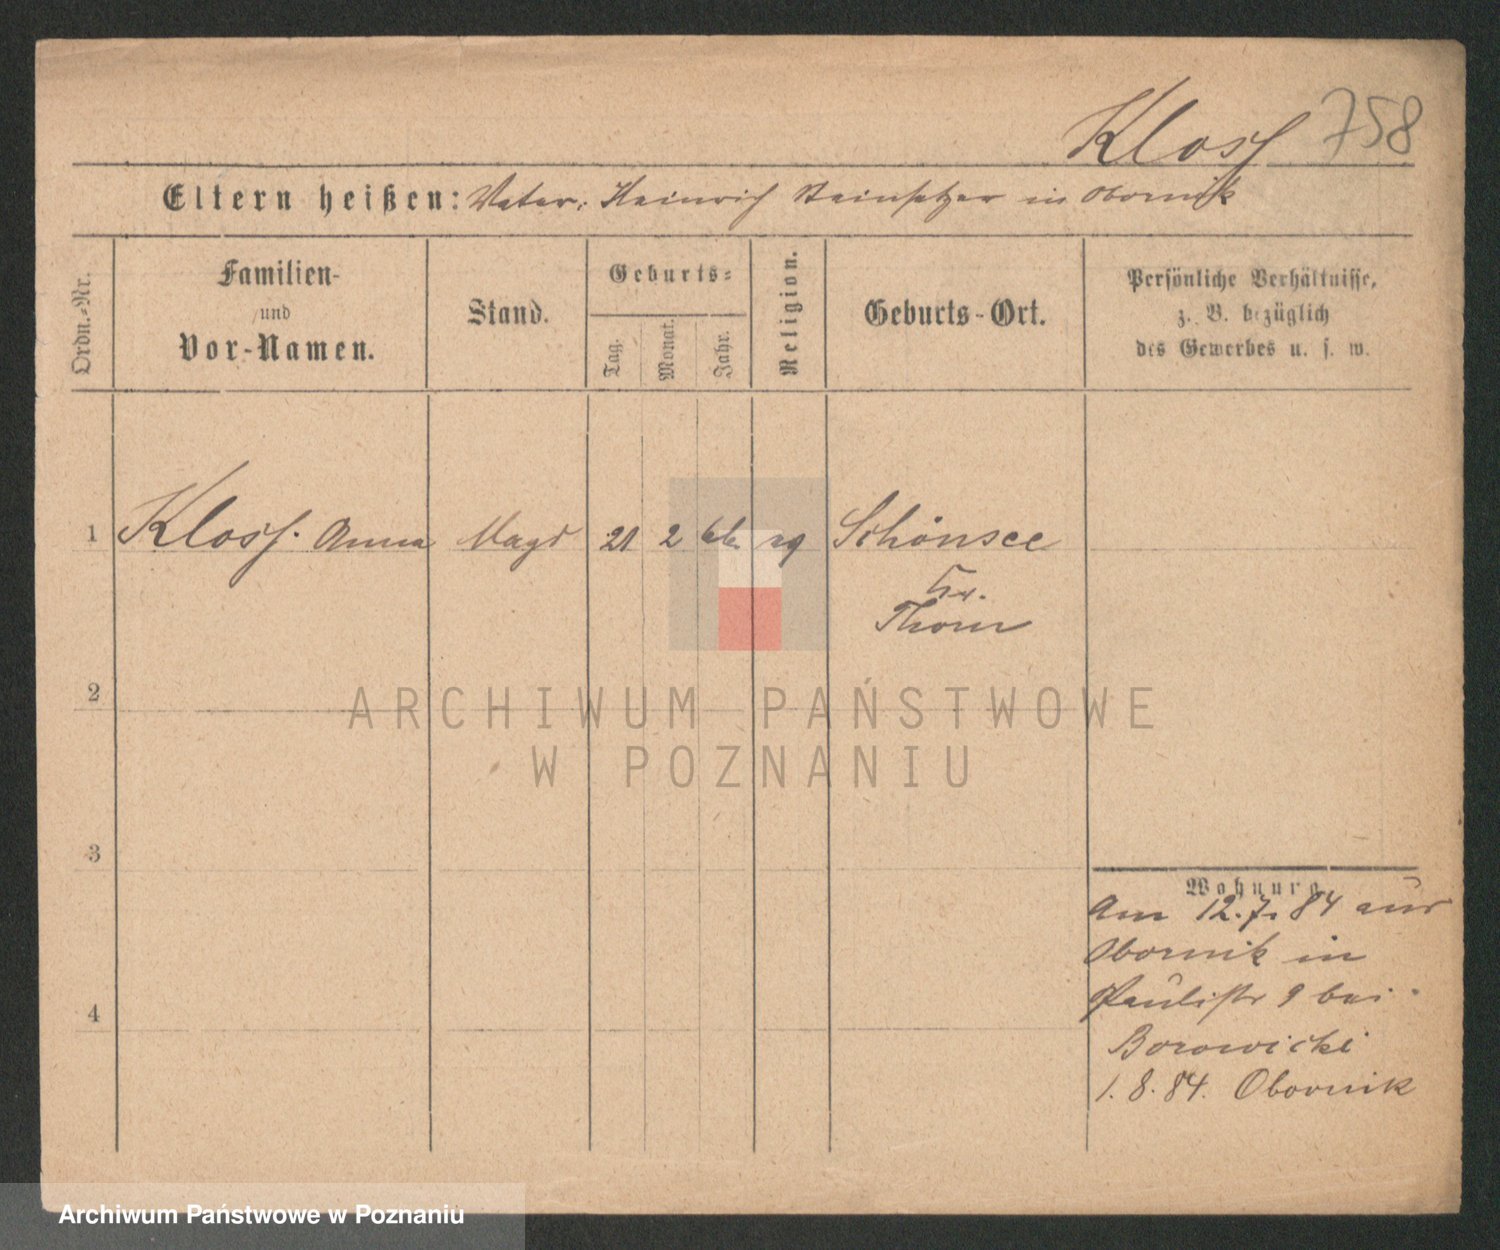 Kloss 758
Eltern heißen: Vater: Heinrich Steinsetzer in Obornik
Ordn.-Nr.
Familien-
und
Vor-Namen.
Stand.
Geburts-
Tag.
Monat.
Jahr.
Religion.
Geburts-Ort.
Persönliche Verhältnisse,
z. B. bezüglich
des Gewerbes u. s. w.
1 Kloss. Anna Magd 21 2 66 Schönsee
Kr.
Thorn
2
ARCHIWUM PAŃSTWOWE
W POZNANIU
3
Wohnung
Am 12.7.84 aus
Obornik in
Paulistr 9 bei
4
Borowicki
1.8.84. Obornik
Archiwum Państwowe w Poznaniu